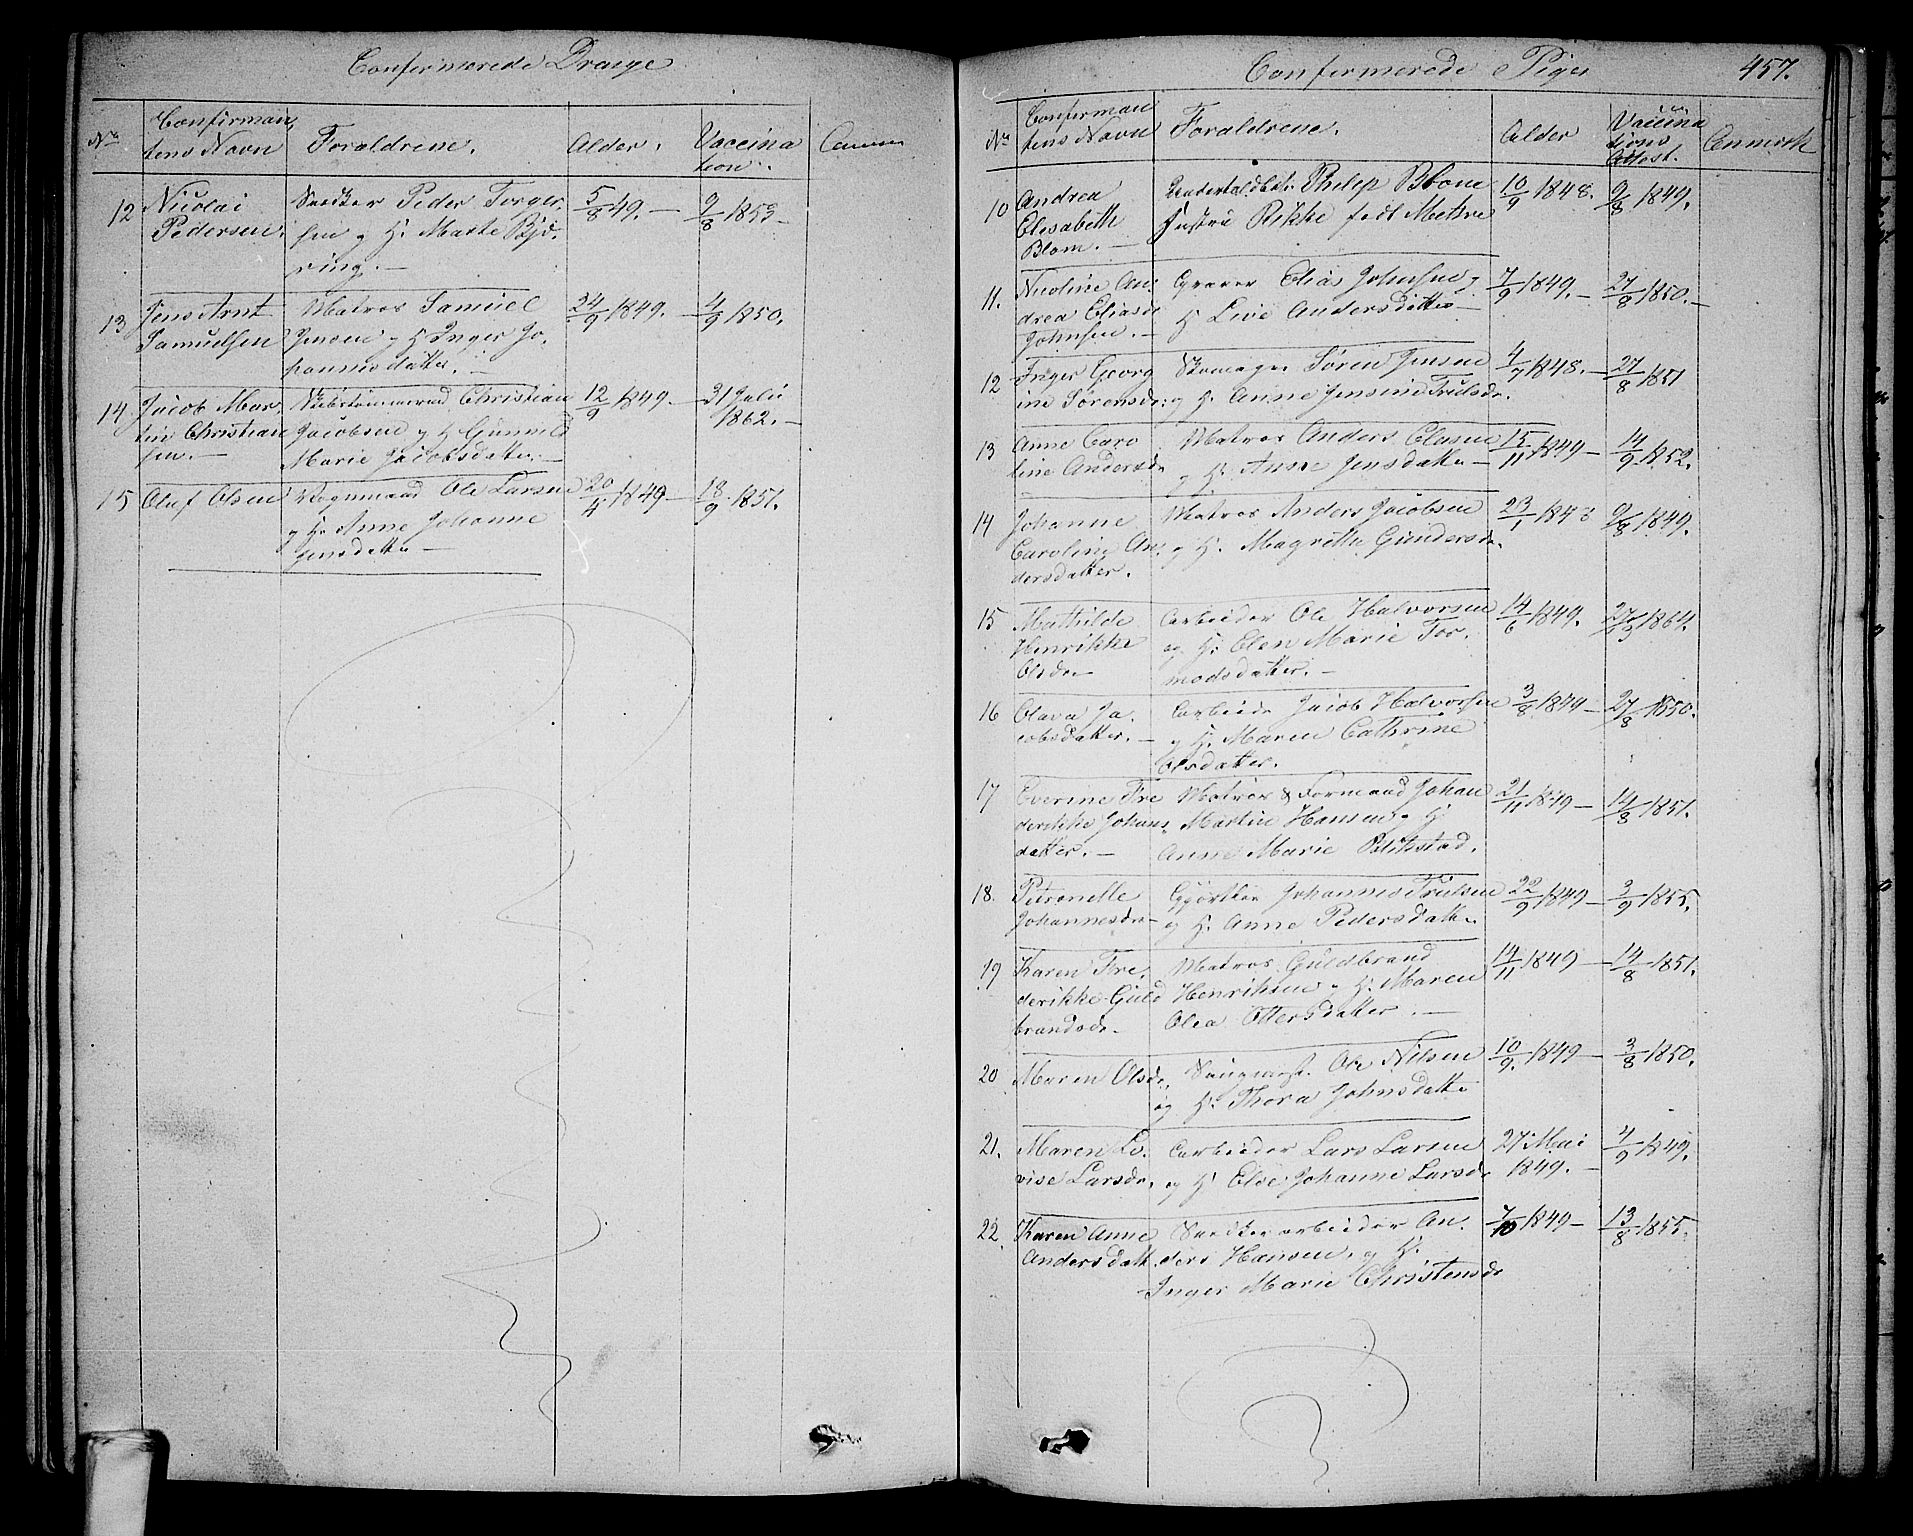 Confirmerede Drenge
No
Confirman
tens Navn
Forældrene.
Alder.
Vaccina
tion.
12
Nicolai
Pedersen.
Snedker Peder Torger
sen og H. Marte Bjö
ring.
5/8 49.
9/8 1853
13
Jens Arnt
Samuelsen
Matros Samuel
Jensen og H Inger Jo
hannesdatter.
24/9 1849.
4/9 1850.
14
Jacob Mar
tin Christian
sen.
Christian
Jacobsen og H Gunnild
Marie Jacobsdatter.
12/9 1849.
31 Juli
1862.
15
Oluf Olsen
Ole Larsen
og H. Anne Johanne
Jensdatter
20/4 1849
18/9 1851.
Confirmerede Piger
457.
No
Confirman
tens Navn
Forældrene.
Alder
Vaccina
tions
Attest.
Anmerk
10
Andrea
Elisabeth
Blom.
Philip Blom
Hustru Rikke født
10/9 1848.
9/8 1849.
11.
Nicoline An
drea Eliasd
Johnsen.
Graver Elias Johnsen og
H Live Andersdatter
7/9 1849.
27/8 1850.
12
Inger Georg
ine Sörensd.
Skomager Sören Jensen
og H. Anne Jensine Trulsd.
4/7 1848.
27/8 1851
13
Anne Caro
line Andersd
Matros Anders Olasen
og H. Anne Jensdatter
15/11 1849
14/9 1852.
14
Johanne
Caroline An
dersdatter.
Matros Anders Jacobsen
og H. Magrethe Gundersd.
23/1 1848
9/8 1849.
15
Mathilde
Henrikke
Olsd.
Arbeider Ole Halvorsen
og H. Elen Marie Tor
modsdatter.
14/6 1849.
1864.
16
Olava Ja
cobsdatter.
Arbeider Jacob Halvorsen
og H. Maren Cathrine
Olsdatter.
3/8 1849
27/8 1850.
17
Everine Fre
derikke Johans
datter.
Matros & Formand Johan
Martin Hansen og H
Anne Marie Blikstad.
21/11 1849
14/8 1851.
18.
Petronelle
Johannesd.
Gjörtler Johannes Trulsen
og H. Anne Pedersdatter
22/9 1849
3/9 1855.
19
Karen Fre
derikke Guld
brandsd.
Matros Guldbrand
Henriksen og H. Maren
Olea Ottersdatter.
14/11 1849
14/8 1851.
20
Maren Olsd.
Saugmest. Ole Nilsen
og H. Thora Johnsdatter
10/9. 1849
3/8 1850.
21.
Maren Lo
vise Larsd.
Arbeider Lars Larsen
og H. Else Johanne Larsd.
27 Mai
1849.
4/9 1849.
22.
Karen Anne
Andersdatt.
Snedkerarbeider An
ders Hansen og H.
Inger Marie Christensd
7/10 1849
13/8 1855.